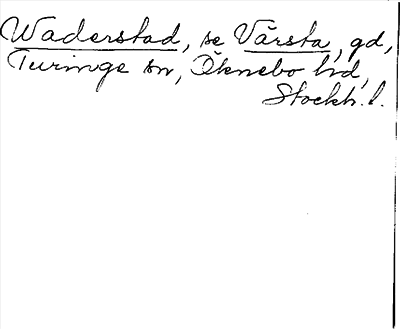 Waderstad, se Vårsta, gd,
Turinge sn, Öknebo hd,
Stockh. l.